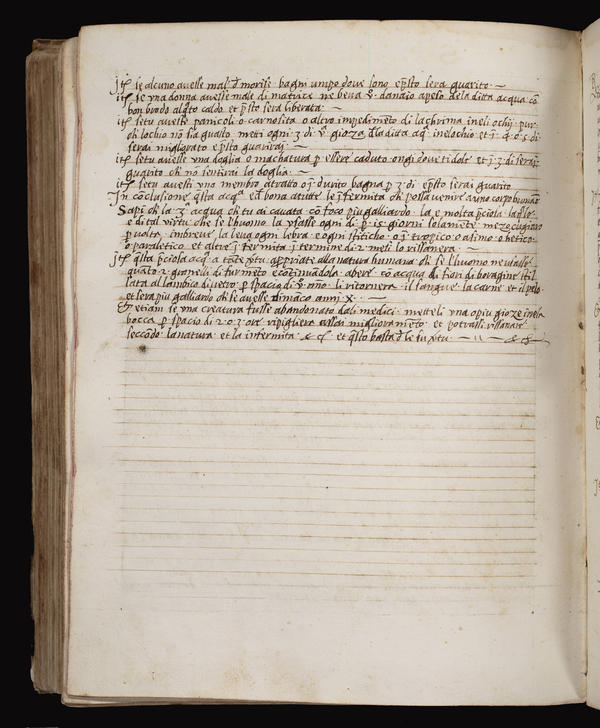 jtẽ se alcuno avesse mal đ morise bagni un pò dove sono epsto sera guarito ~
itẽ se yna donna avesse male di matrice ne beva ỹ danaio apeso dela ditta acqua cõ
bon brodo alqto caldo et psto sera liberata ~
itẽ se tu aveste panicoli o carnosita o altro impedimẽto di lachrima ineli ochij pur
ch lochio nõ sia guasto metti ogni 3 di vª gioza đla ditta aqª inelochio et ĩ 4 o 5 di
serai migliorato epsto guarirai ~
itẽ se tu avesse yna doglia o machatura p essere caduto ongi dove ti dole et ĩ 3 di serai
guarito ch nõ sentirai la doglia ~
itẽ se tu avesti yno membro atratto o ĩdurito bagna p 3 di epsto serai guarito
Jn cõclusione qsta acqª e bona a tutte le ĩfermita ch possa venire a uno corpo humano
Sapi ch la 3ª acqua ch tu ai cavata cõ foco piu galliardo la e molto pciosa
e di tal virtu che se lhuomo la ysasse ogni di p 15 giorni
p volta imbreve la leva ogni lebra e ogni stiticho o ĩtropico o asimo o hetico
o paraletico et altre ĩfermita ĩ termine di 2 mesi lo rissanera ~
jtẽ qsta pciosa acqª a tante ỹtu appriate alla natura humana ch se lhuomo ne usasse
quãto 2 granelli di furmẽto e cõtinuãdola a bere cõ acqua di fiori di boragine stil
lata al lambico di vetro p spacio di ỹ año li ritornera il sangue la carne et il pelo
et sera piu galliardo ch se avesse dimãco anni x ~
Et etiam se yna creatura fusse abandonato dali medici metteli yna o piu gioze inela
bocca p spacio di 2 o 3 ore ripigliera assai miglioramẽto et potrassi rissanare
secõdo la natura et la infermita & cª et qsto basta đ le su ỹtu ~ ıı ~ & cª